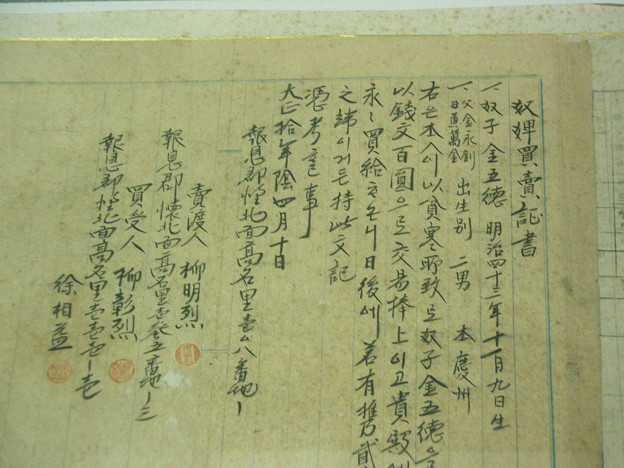 奴婢買賣証書
一、奴子 金五德 明治四十三年十一月九日生
一、父金永釗 母黃萬金 出生別 二男 本慶州
右은本人이以貧寒所致로奴子金五德을
以錢文百圓으로交易捧上이고貴殿
永々買給하오니日後에若有
之端이거든持此文記
憑考定事
大正拾年陰四月十日
報恩郡懷北面高石里 八番地
賣渡人 柳明烈
報恩郡懷北面高石里 番地
買受人 柳彰烈
報恩郡懷北面高石里
徐相益